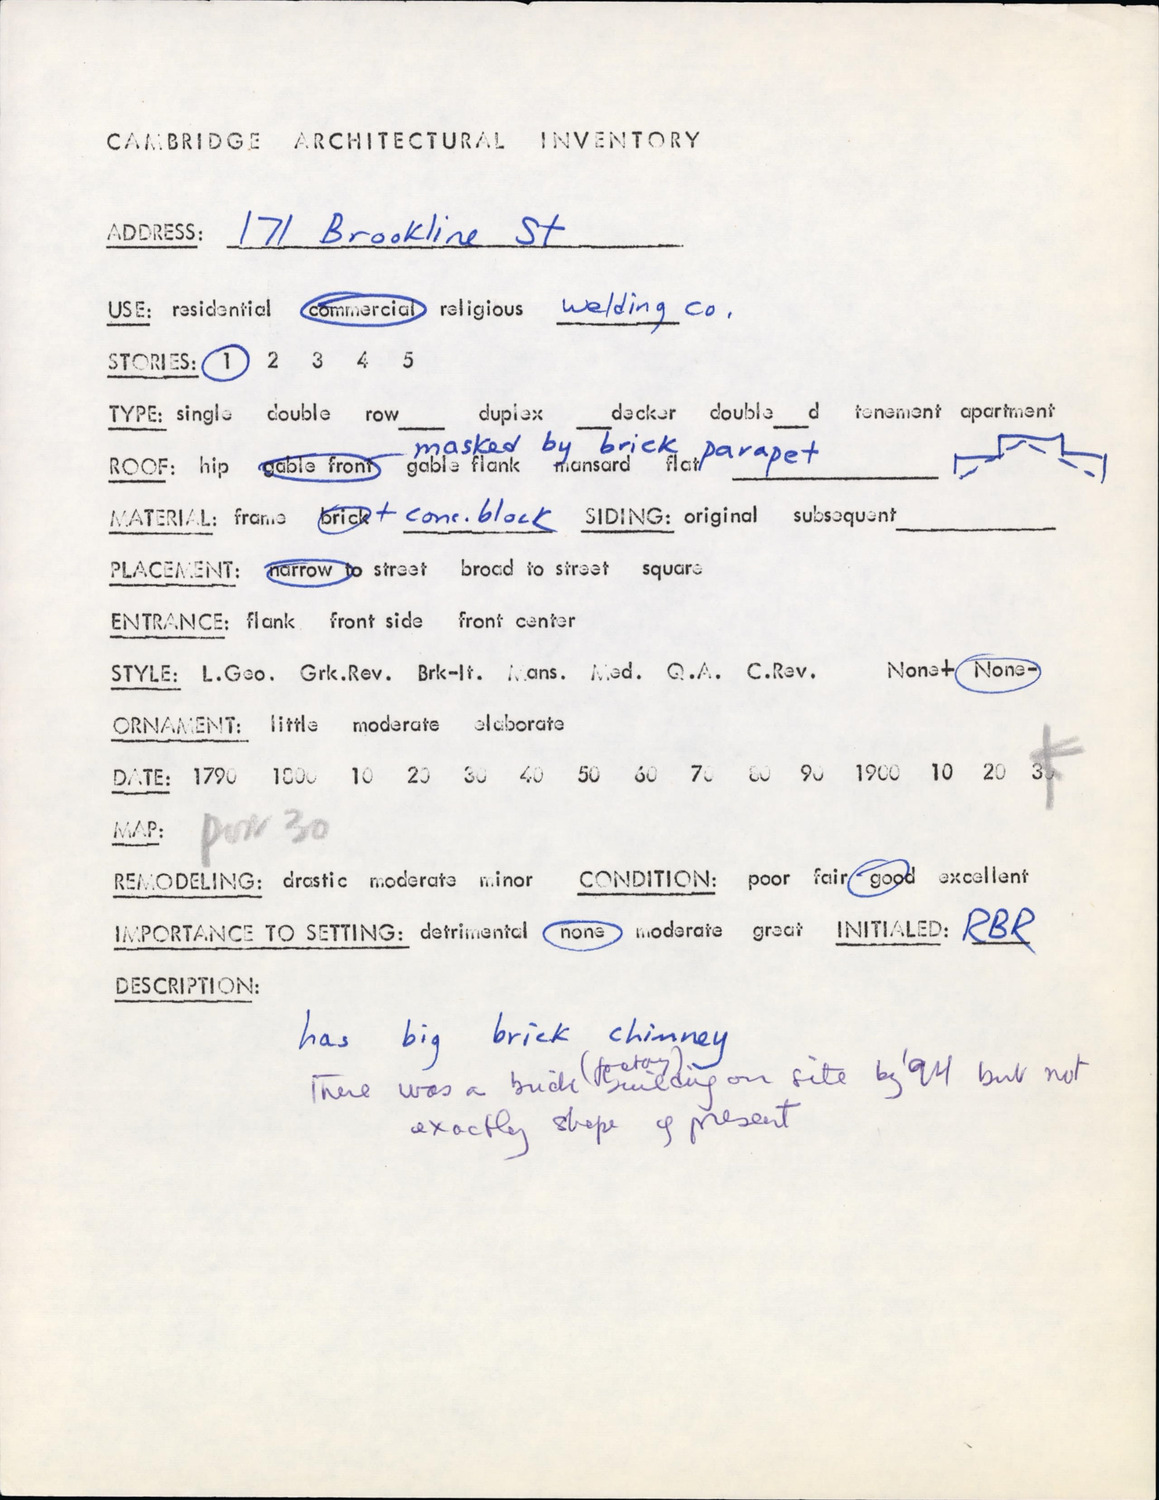 CAMBRIDGE ARCHITECTURAL INVENTORY
ADDRESS: 171 Brookline St
USE: residential commercial religious welding co.
STORIES: 1 2 3 4 5
TYPE: single double row___ duplex ___decker double___d tenement apartment
masked by brick parapet
ROOF: hip gable front gable flank mansard flat
MATERIAL: frame brick + conc. block SIDING: original subsequent
PLACEMENT: narrow to street broad to street square
ENTRANCE: flank front side front center
STYLE: L.Geo. Grk.Rev. Brk-It. Mans. Med. Q.A. C.Rev. None+ None-
ORNAMENT: little moderate elaborate
DATE: 1790 1800 10 20 30 40 50 60 70 80 90 1900 10 20 30
MAP: 30
REMODELING: drastic moderate minor CONDITION: poor fair good excellent
IMPORTANCE TO SETTING: detrimental none moderate great INITIALED: RBR
DESCRIPTION:
has big brick chimney
(factory)
There was a brick building on site by '94 but not
exactly shape of present